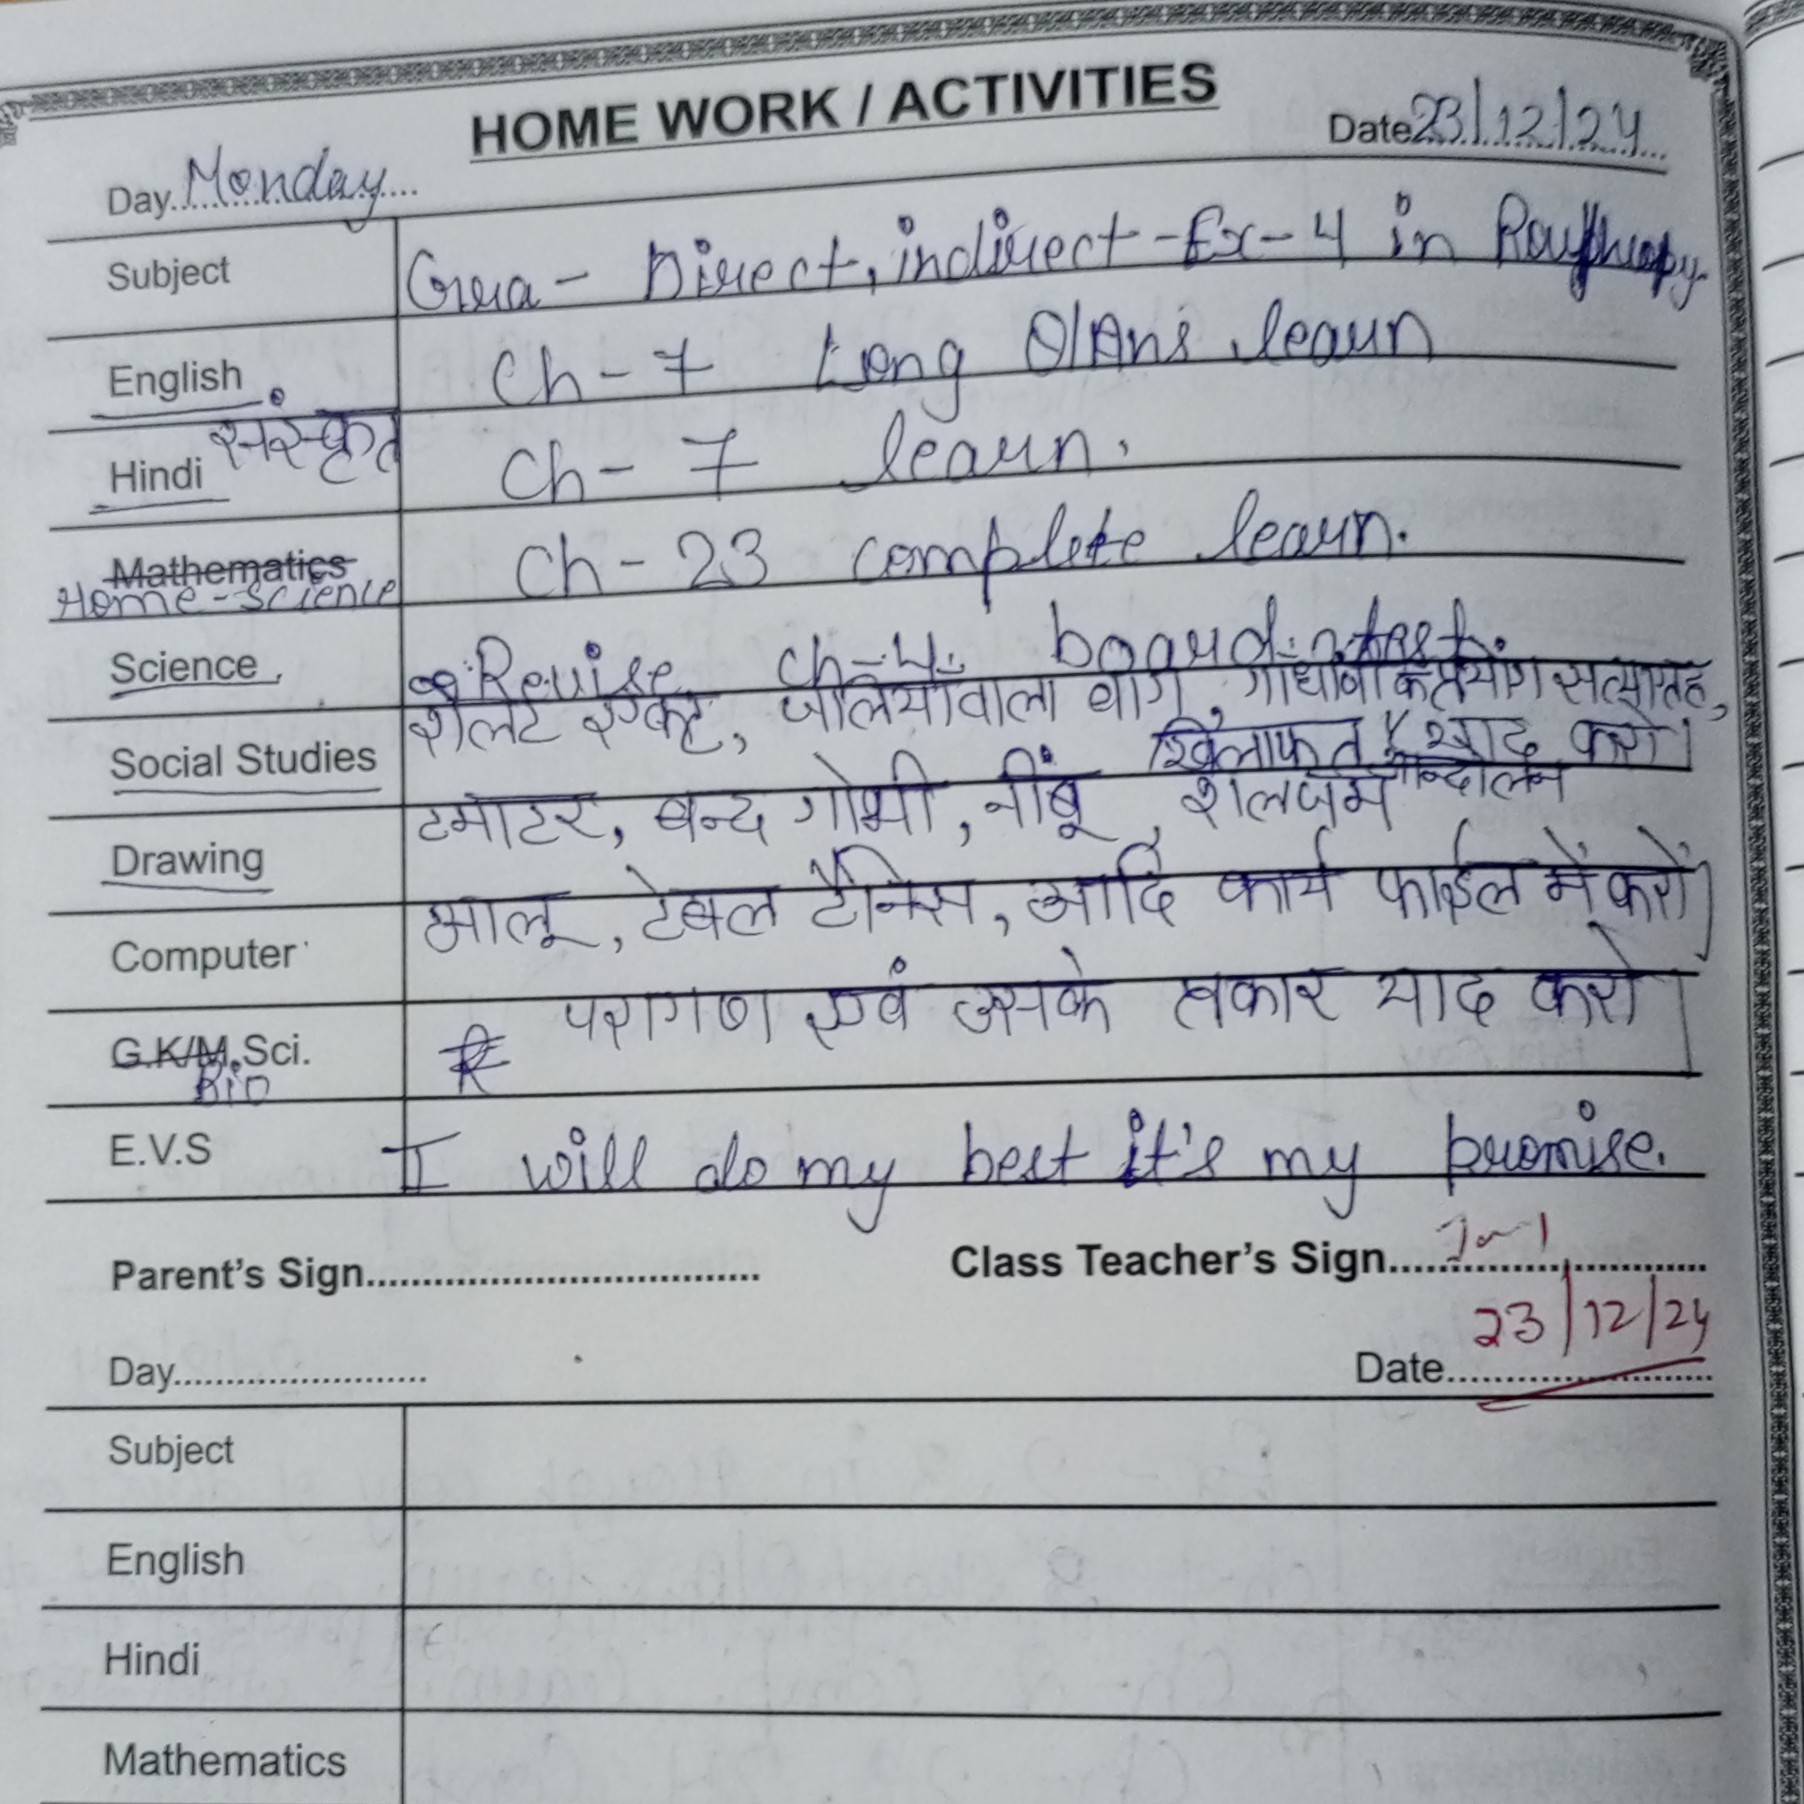 HOME WORK / ACTIVITIES
Day Monday Date 23/12/24
Subject Gra - Direct, indirect - Ex - 4 in
English Ch - 7 Long Q/Ans learn
Hindi संस्कृत Ch - 7 learn.
Mathematics Home-Science Ch - 23 complete learn.
Science Revise Ch-4 board
Social Studies रोलट एक्ट, जलियाँवाला बाग, सत्याग्रह,
खिलाफत आन्दोलन याद करो।
Drawing टमाटर, बन्द गोभी, नींबू, शलजम
Computer आलू, टेबल टेनिस, आदि कार्य फाईल में करो।
G.K/M.Sci. Bio परागण एवं उसके प्रकार याद करो।
E.V.S I will do my best it's my promise.
Parent's Sign Class Teacher's Sign
23/12/24
Day Date
Subject
English
Hindi
Mathematics